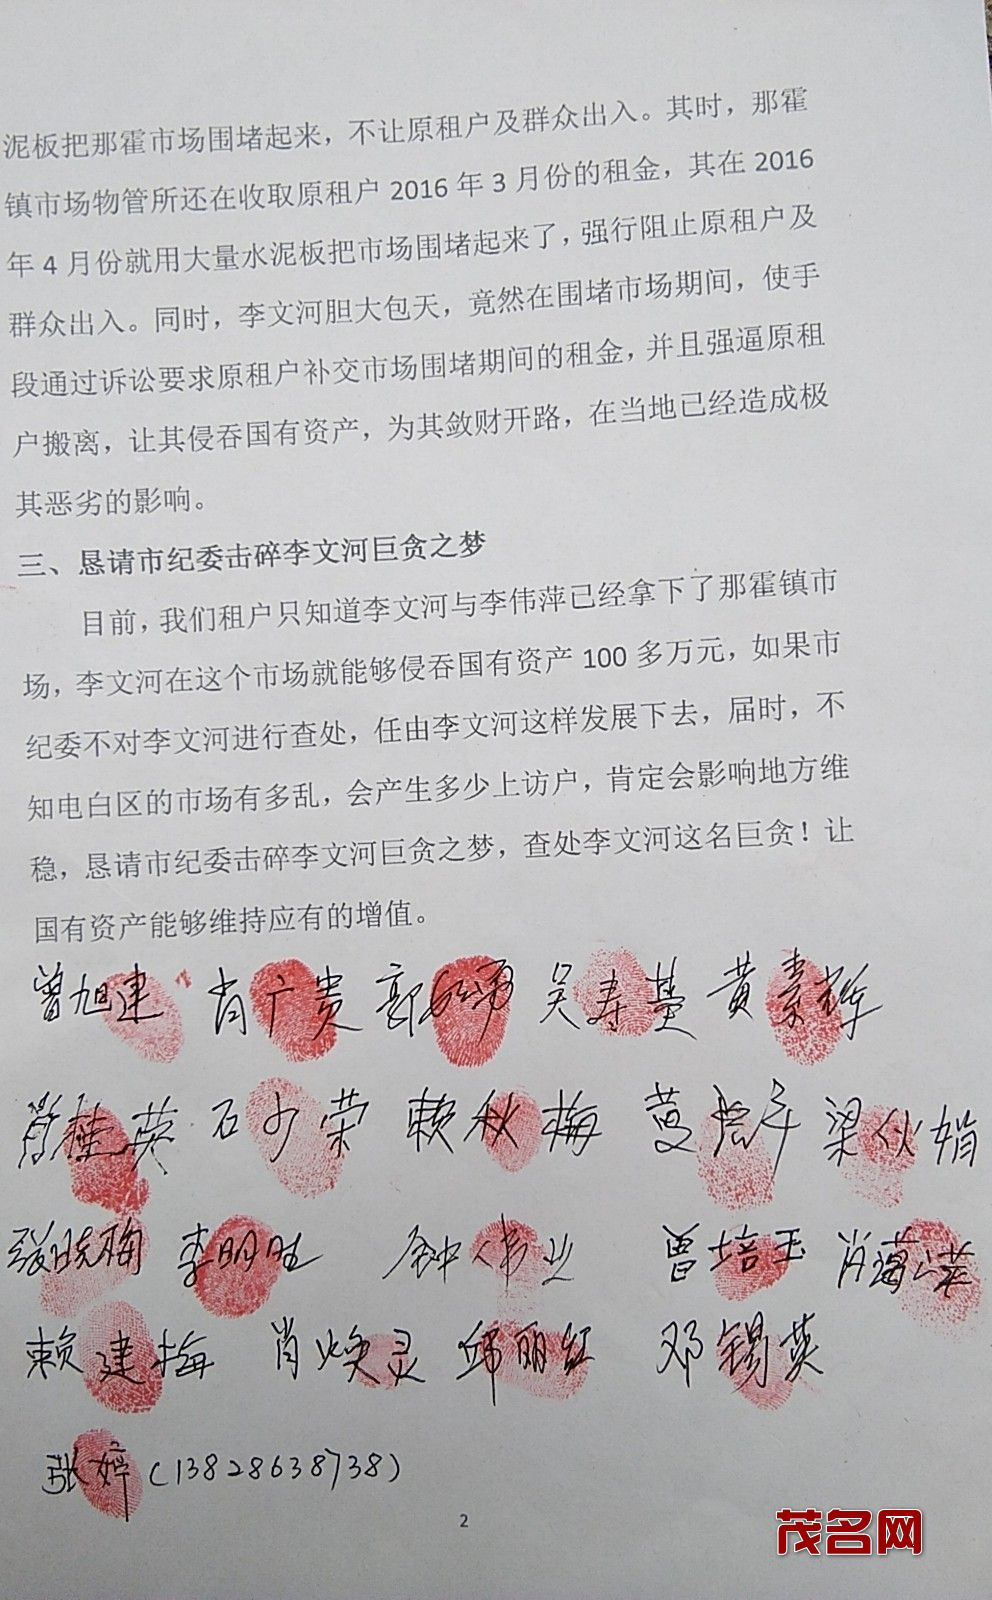 泥板把那霍市场围堵起来，不让原租户及群众出入。其时，那霍
镇市场物管所还在收取原租户 2016 年 3 月份的租金，其在 2016
年 4 月份就用大量水泥板把市场围堵起来了，强行阻止原租户及
群众出入。同时，李文河胆大包天，竟然在围堵市场期间，使手
段通过诉讼要求原租户补交市场围堵期间的租金，并且强逼原租
户搬离，让其侵吞国有资产，为其敛财开路，在当地已经造成极
其恶劣的影响。
三、恳请市纪委击碎李文河巨贪之梦
目前，我们租户只知道李文河与李伟萍已经拿下了那霍镇市
场，李文河在这个市场就能够侵吞国有资产 100 多万元，如果市
纪委不对李文河进行查处，任由李文河这样发展下去，届时，不
知电白区的市场有多乱，会产生多少上访户，肯定会影响地方维
稳，恳请市纪委击碎李文河巨贪之梦，查处李文河这名巨贪！让
国有资产能够维持应有的增值。
曾旭建 肖广贵 吴寿 黄素辉
肖桂英 石少荣 赖秋梅 梁伙娟
张晓梅 李明旺 钟伟业 曾培玉
赖建梅 肖焕灵 邱丽红 邓锡英
张婷（13828638738）
2
茂名网